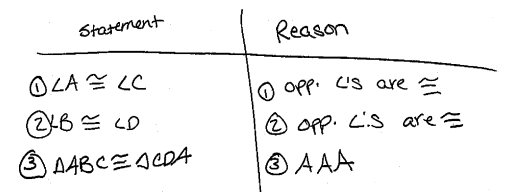 Statement Reason
① ∠A ≅ ∠C ① opp. ∠'s are ≅
② ∠B ≅ ∠D ② opp. ∠'s are ≅
③ △ABC ≅ △CDA ③ AAA